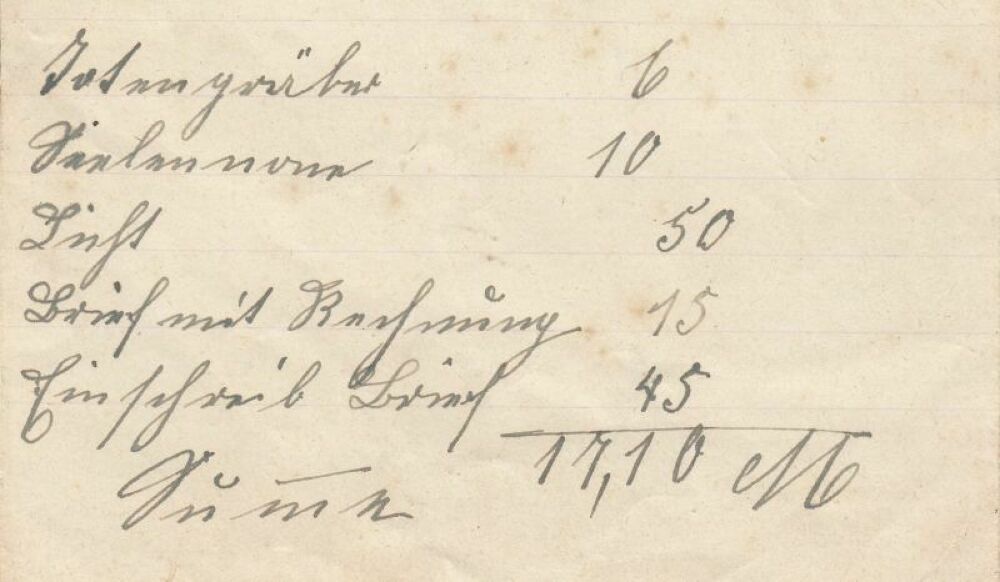 Totengräber 6
Seelennone 10
Licht 50
Brief mit Rechnung 15
Einschreib Brief 45
Sum̅e 17,10 M